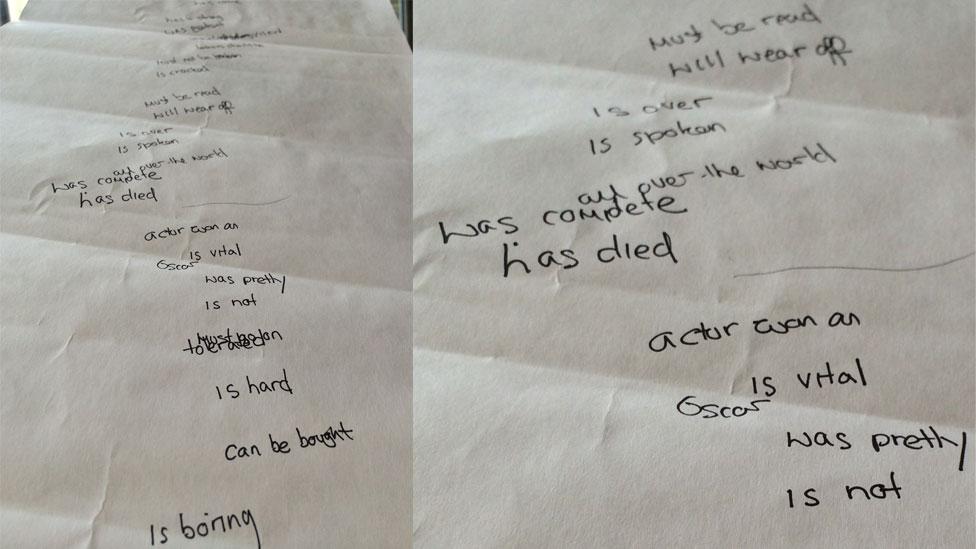 was spoken
must not be broken
is cracked
must be read
will wear off
is over
is spoken
all over the world
was compete
has died
actor won an
is vital
Oscar
was pretty
is not
tolerated
is hard
can be bought
is boring
must be read
will wear off
is over
is spoken
all over the world
was compete
has died
actor won an
is vital
Oscar
was pretty
is not